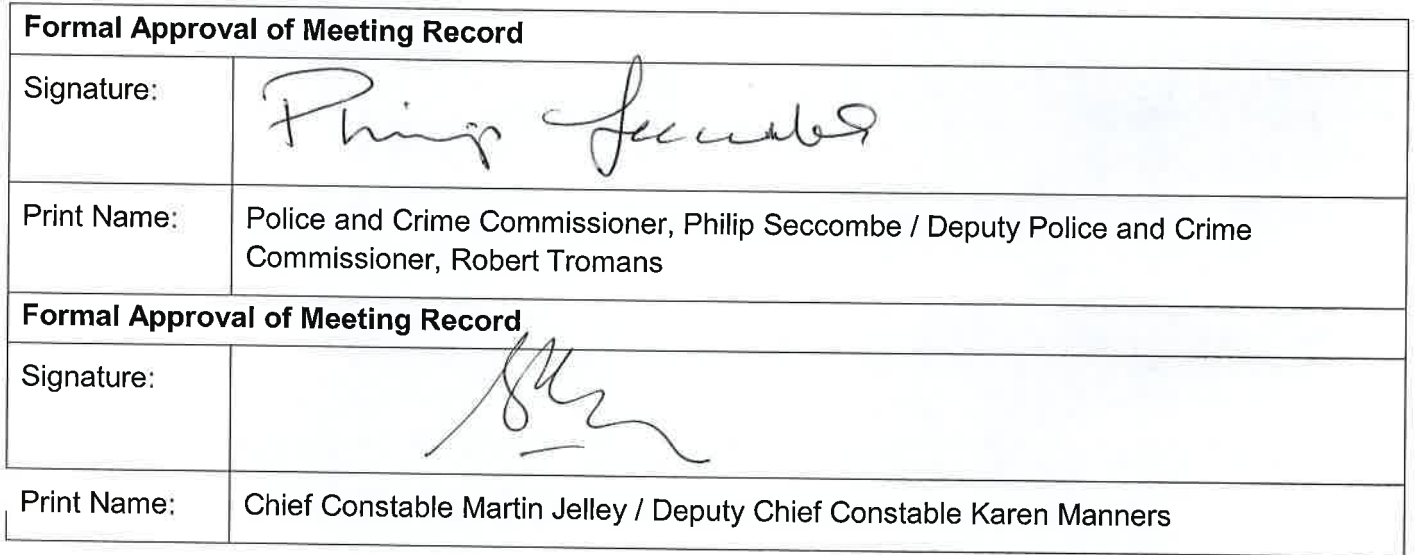 Formal Approval of Meeting Record
Signature:
Philip Seccombe
Print Name:
Police and Crime Commissioner, Philip Seccombe / Deputy Police and Crime
Commissioner, Robert Tromans
Formal Approval of Meeting Record
Signature:
Print Name:
Chief Constable Martin Jelley / Deputy Chief Constable Karen Manners